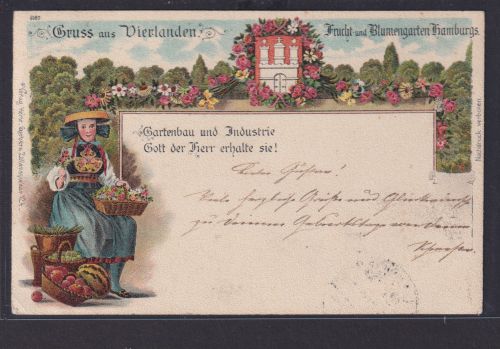 Gruss aus Vierlanden.
Frucht und Blumengarten Hamburgs.
Gartenbau und Industrie
Gott der Herr erhalte sie!
Viele herzliche Grüße und Glückwunsch
zu Deinem Geburtstage von Deinem
Nachdruck verboten.